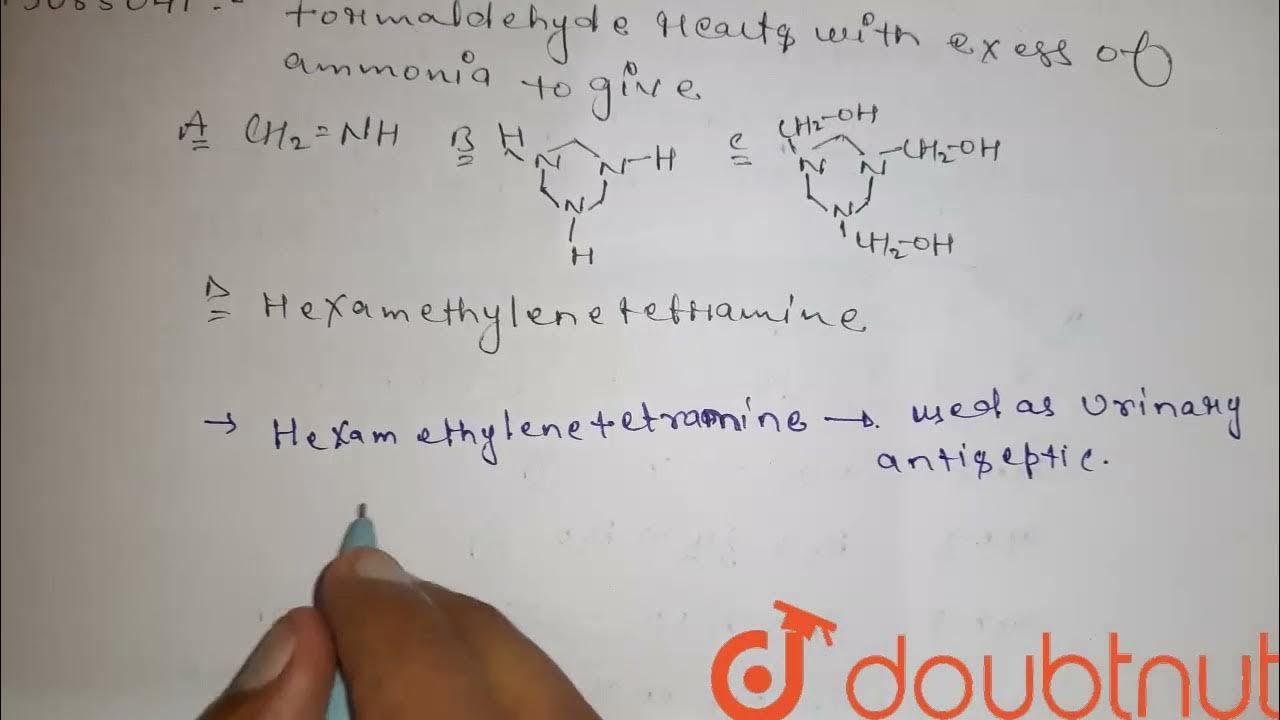 formaldehyde reacts with exess of
ammonia to give
A CH2=NH B H N N-H N H C CH2-OH N N -CH2-OH N CH2-OH
D Hexamethylenetetramine
→ Hexamethylenetetramine → used as urinary
antiseptic.
doubtnut